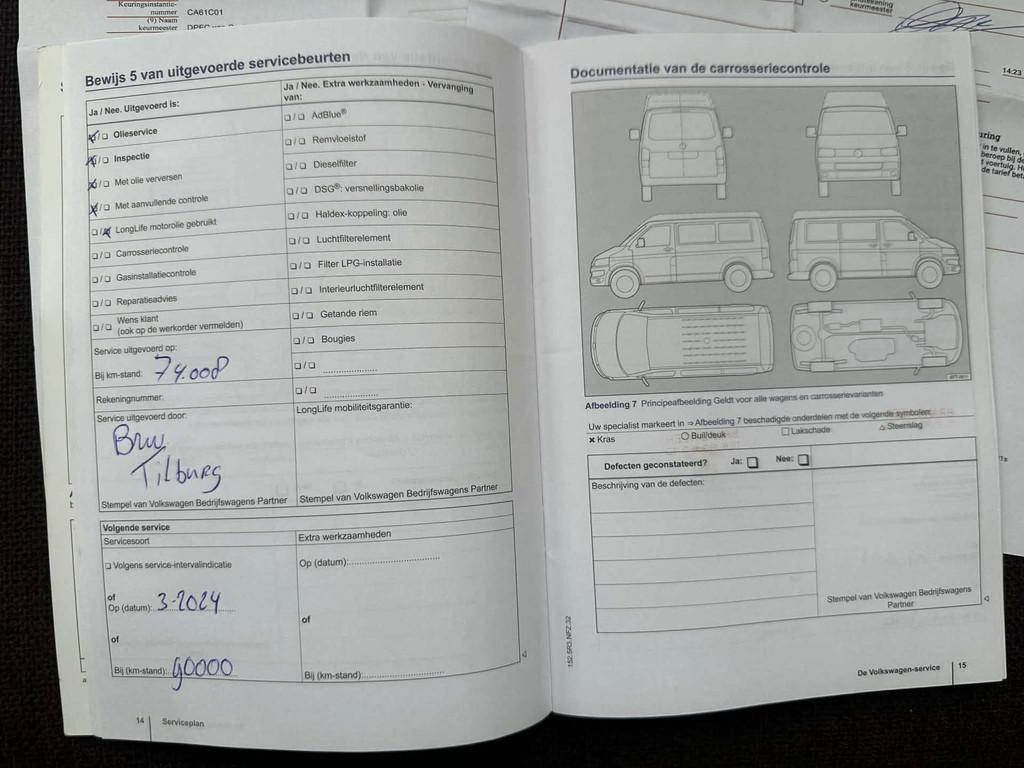 Keuringsinstantie-
nummer CA61C01
(9) Naam
keurmeester
keurmeester
14:23
Bewijs 5 van uitgevoerde servicebeurten
Ja / Nee. Uitgevoerd is:
Ja / Nee. Extra werkzaamheden - Vervanging
van:
Olieservice
Inspectie
Met olie verversen
Met aanvullende controle
LongLife motorolie gebruikt
Carrosseriecontrole
Gasinstallatiecontrole
Reparatieadvies
Wens klant
(ook op de werkorder vermelden)
Service uitgevoerd op:
Bij km-stand: 74.008
Rekeningnummer:
Service uitgevoerd door:
Tilburg
Stempel van Volkswagen Bedrijfswagens Partner
☐ / ☐ AdBlue®
☐ / ☐ Remvloeistof
☐ / ☐ Dieselfilter
☐ / ☐ DSG®: versnellingsbakolie
☐ / ☐ Haldex-koppeling: olie
☐ / ☐ Luchtfilterelement
☐ / ☐ Filter LPG-installatie
☐ / ☐ Interieurluchtfilterelement
☐ / ☐ Getande riem
☐ / ☐ Bougies
☐ / ☐ ....................
☐ / ☐ ....................
LongLife mobiliteitsgarantie:
Stempel van Volkswagen Bedrijfswagens Partner
Volgende service
Servicesoort
☐ Volgens service-intervalindicatie
of
Op (datum): 3-2024
of
Bij (km-stand): 90000
Extra werkzaamheden
Op (datum):..............................
of
Bij (km-stand):..........................
14 Serviceplan
Documentatie van de carrosseriecontrole
Afbeelding 7 Principeafbeelding Geldt voor alle wagens en carrosserievarianten
Uw specialist markeert in ⇒ Afbeelding 7 beschadigde onderdelen met de volgende symbolen:
× Kras ○ Buil/deuk ☐ Lakschade △ Steenslag
Defecten geconstateerd? Ja: ☐ Nee: ☐
Beschrijving van de defecten:
Stempel van Volkswagen Bedrijfswagens
Partner
152.5R3.NFZ.32
De Volkswagen-service 15
in te vullen,
beroep bij de
voertuig. H
de tarief bet